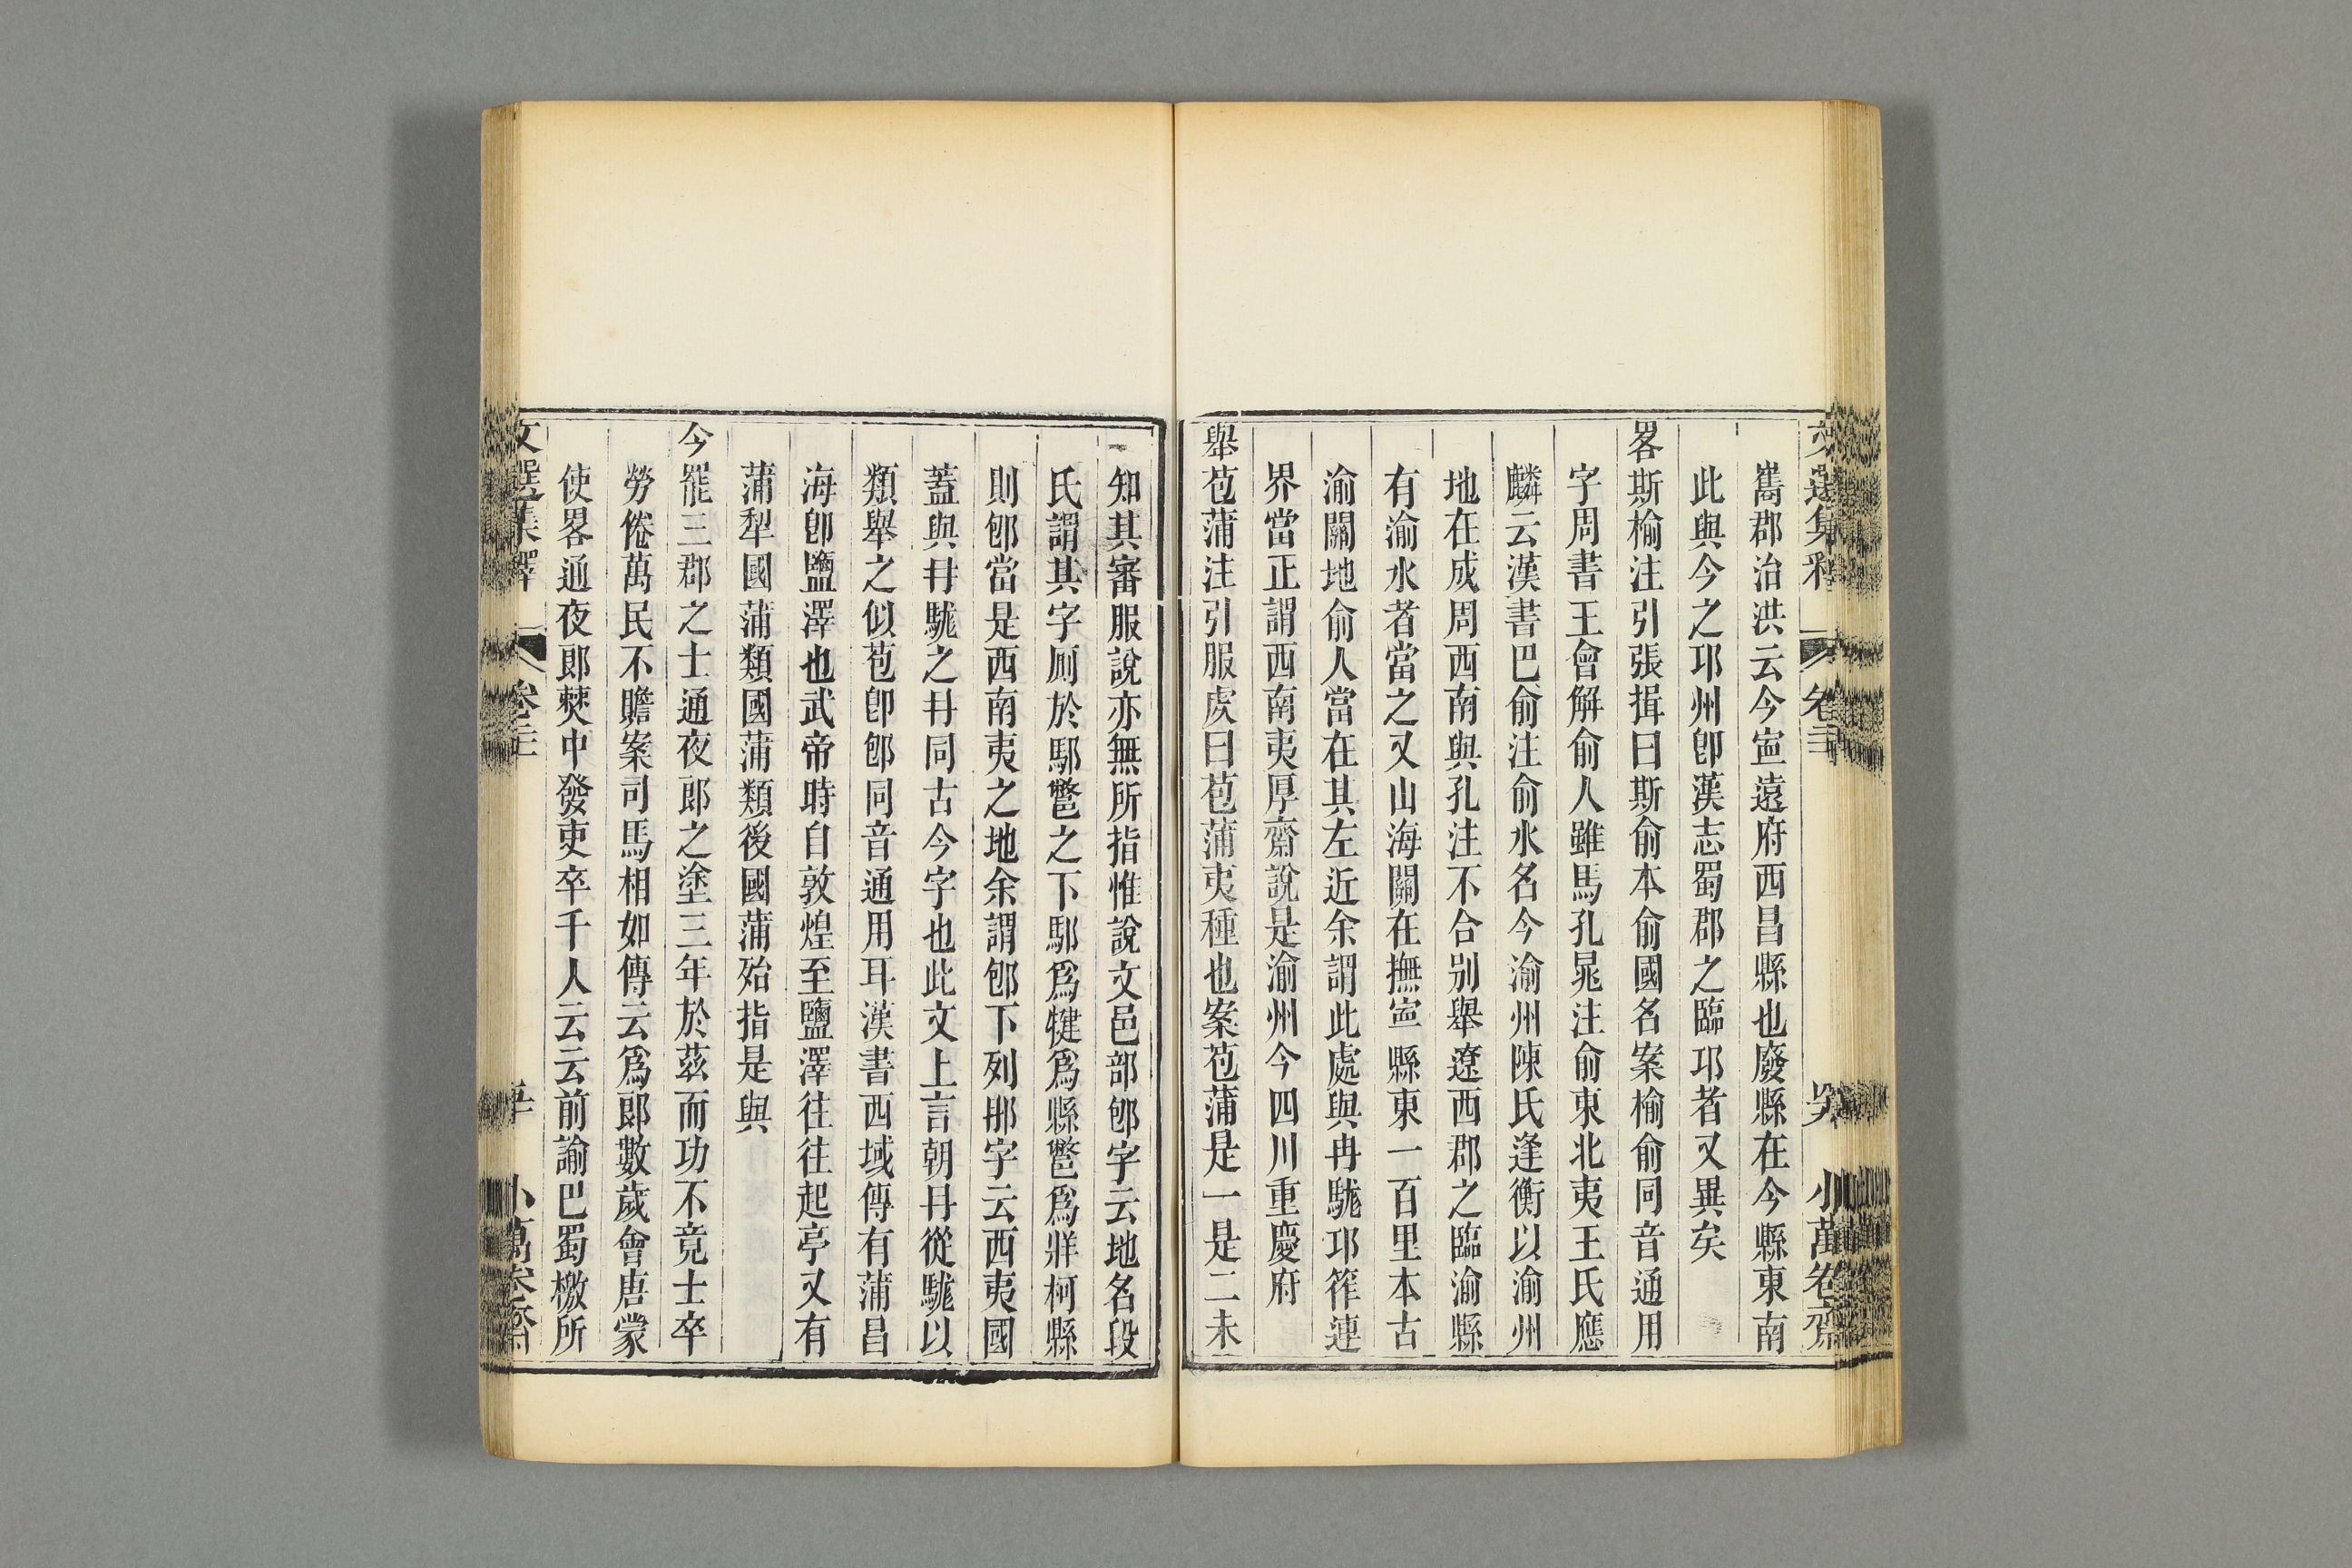 嶲郡治洪云今寍遠府西昌縣也廢縣在今縣東南
此與今之邛州卽漢志蜀郡之臨邛者又異矣
畧斯榆注引張揖曰斯俞本俞國名案榆俞同音通用
字周書王會解俞人雖馬孔晁注俞東北夷王氏應
麟云漢書巴俞注俞水名今渝州陳氏逢衡以渝州
地在成周西南與孔注不合別舉遼西郡之臨渝縣
有渝水者當之又山海關在撫寍縣東一百里本古
渝關地俞人當在其左近余謂此處與冉駹邛筰連
界當正謂西南夷厚齋說是渝州今四川重慶府
舉苞蒲注引服虔曰苞蒲夷種也案苞蒲是一是二未
知其審服說亦無所指惟說文邑部𨚍字云地名段
氏謂其字厠於鄢鄨之下鄢爲犍爲縣鄨爲牂柯縣
則𨚍當是西南夷之地余謂𨚍下列𨙻字云西夷國
蓋與冄駹之冄同古今字也此文上言朝冄從駹以
類舉之似苞卽𨚍同音通用耳漢書西域傳有蒲昌
海卽鹽澤也武帝時自敦煌至鹽澤往往起亭又有
蒲犁國蒲類國蒲類後國蒲殆指是與
今罷三郡之士通夜郎之塗三年於茲而功不竟士卒
勞倦萬民不贍案司馬相如傳云爲郎數歲會唐蒙
使畧通夜郎僰中發吏卒千人云云前諭巴蜀檄所
文選集釋 卷三 小萬卷齋